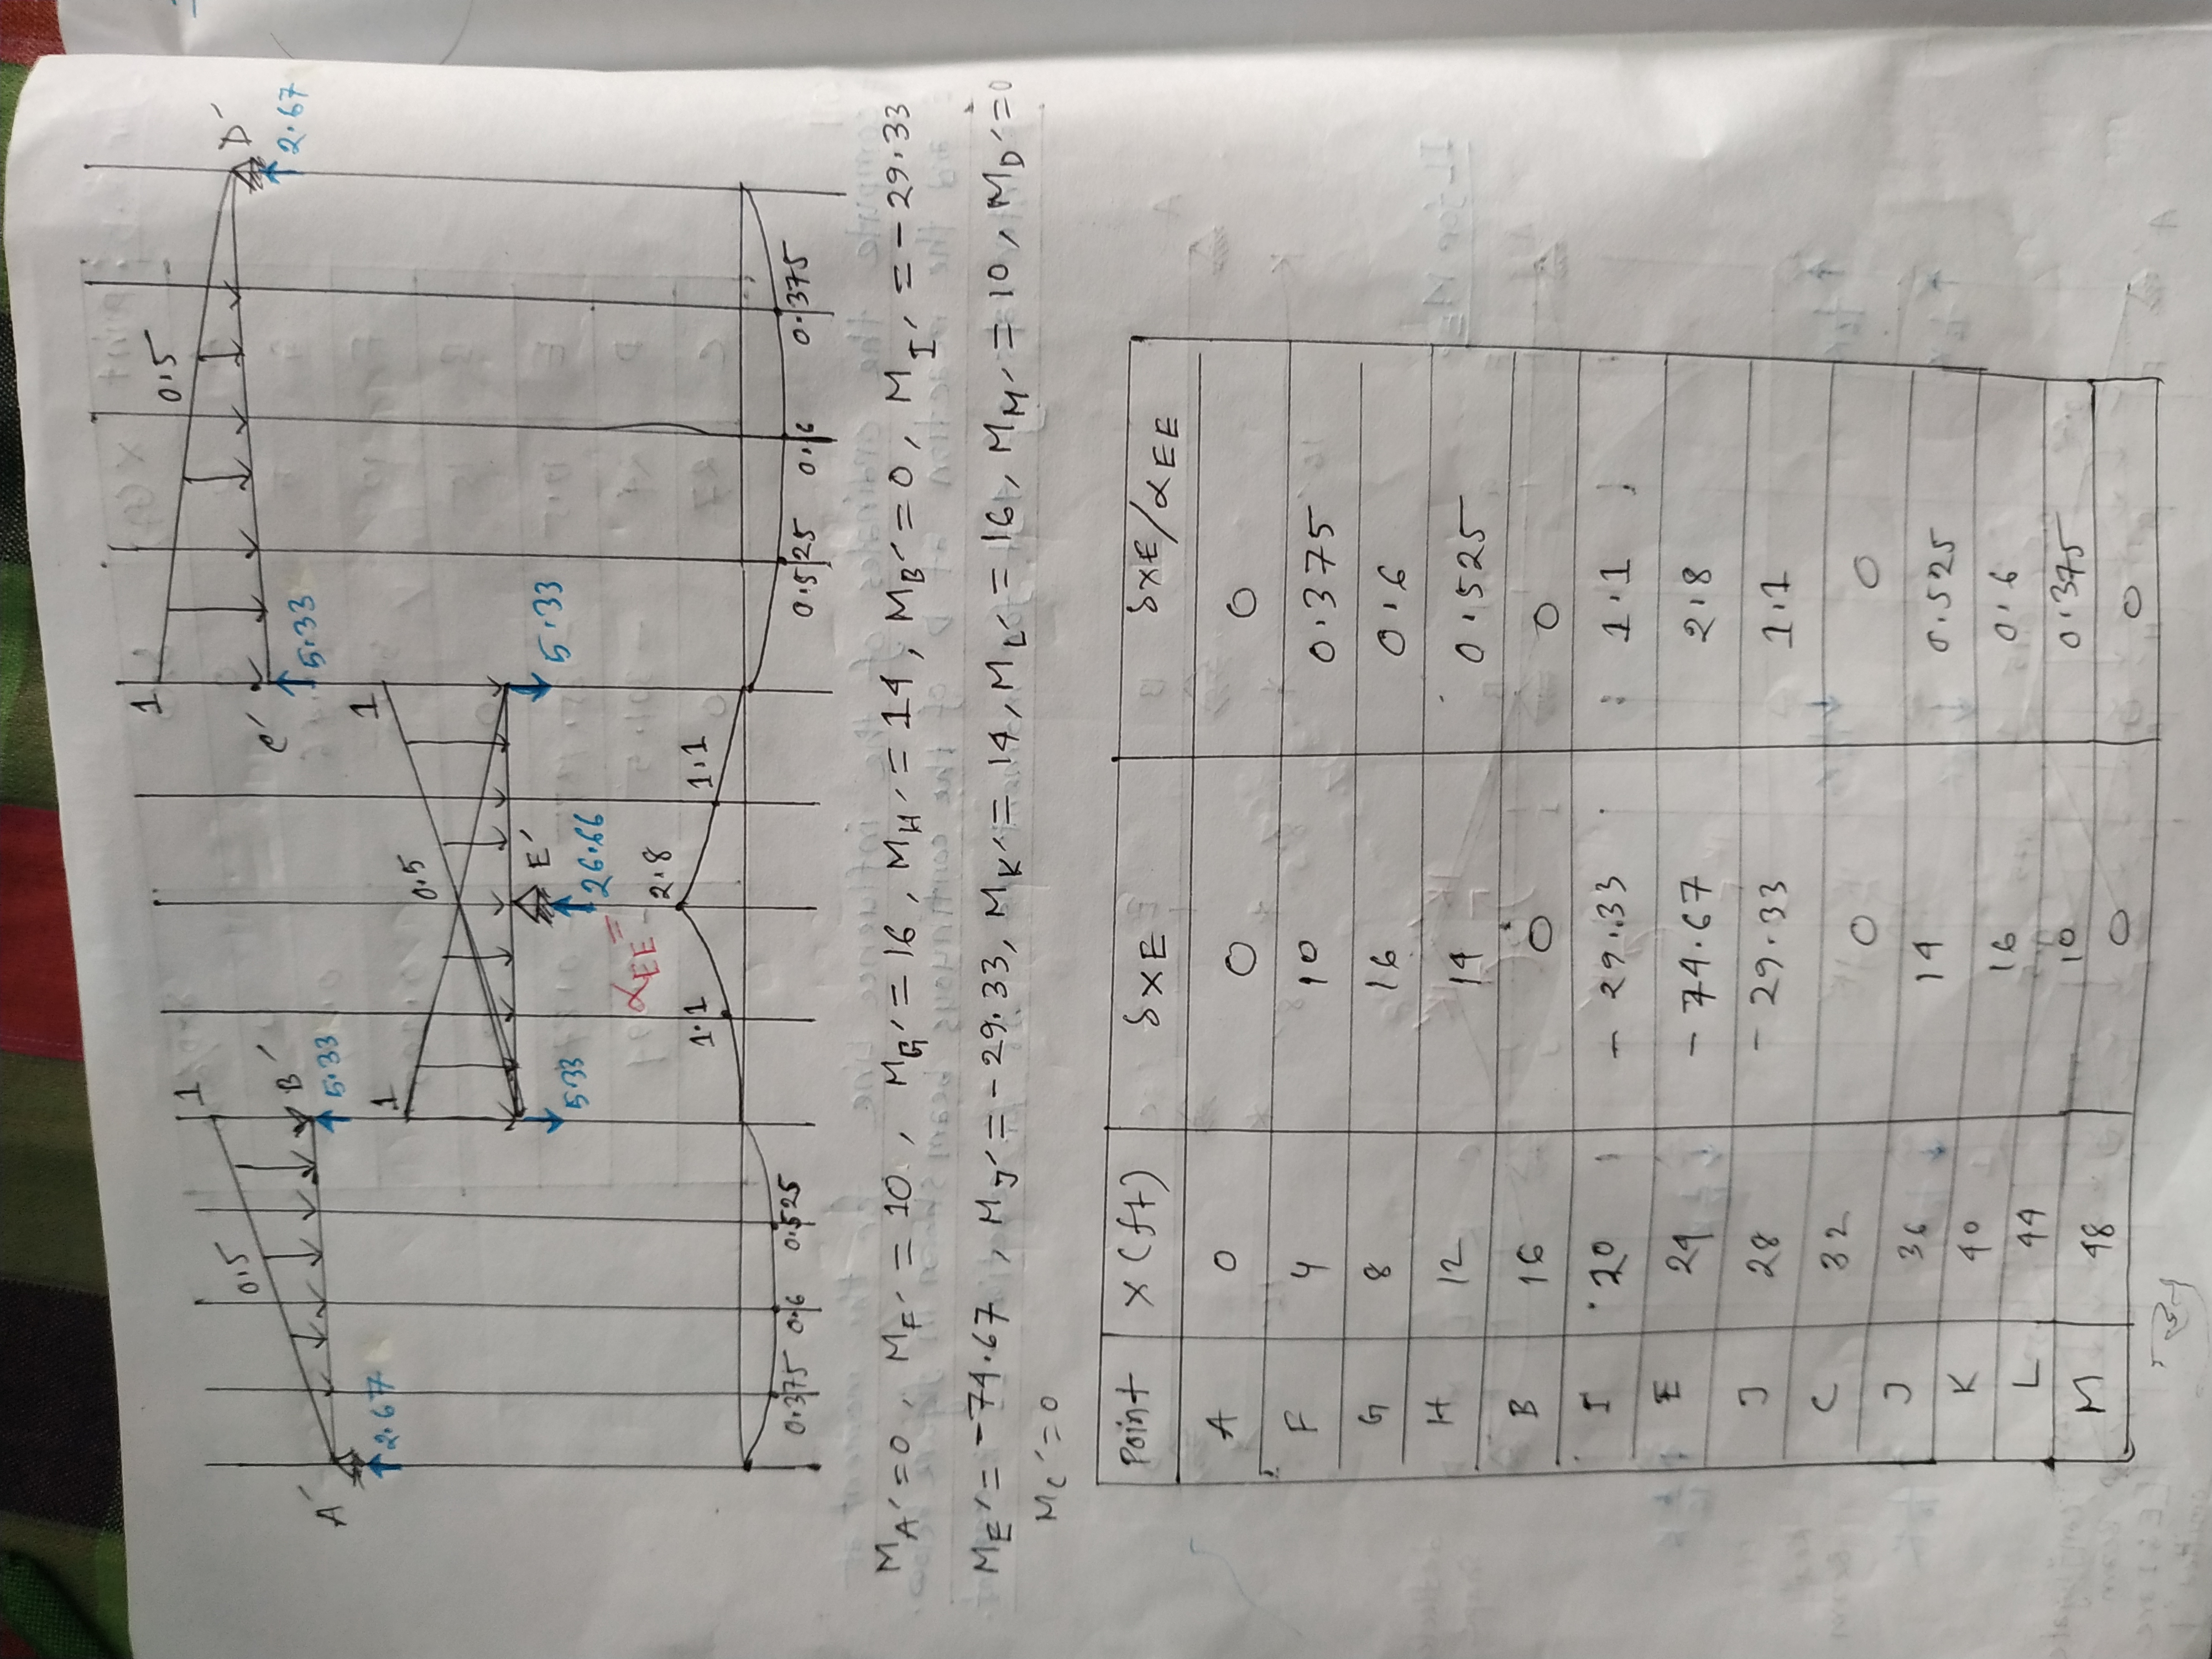 1
0.5
D'
2.67
C'
5.33
1
0.5
B'
5.33
A'
2.67
1
1
0.5
E'
5.33
5.33
26.66
αEE =
0.375
0.6
0.525
1.1
2.8
1.1
0.525
0.6
0.375
MA' = 0, MF' = 10, MG' = 16, MH' = 14, MB' = 0, MI' = -29.33
ME' = -74.67, MJ' = -29.33, MK' = 14, ML' = 16, MM' = 10, MD' = 0
MC' = 0
Point x(ft) δXE δXE/αEE
A 0 0 0
F 4 10 0.375
G 8 16 0.6
H 12 14 0.525
B 16 0 0
I 20 -29.33 1.1
E 24 -74.67 2.8
J 28 -29.33 1.1
C 32 0 0
J 36 14 0.525
K 40 16 0.6
L 44 10 0.375
M 48 0 0